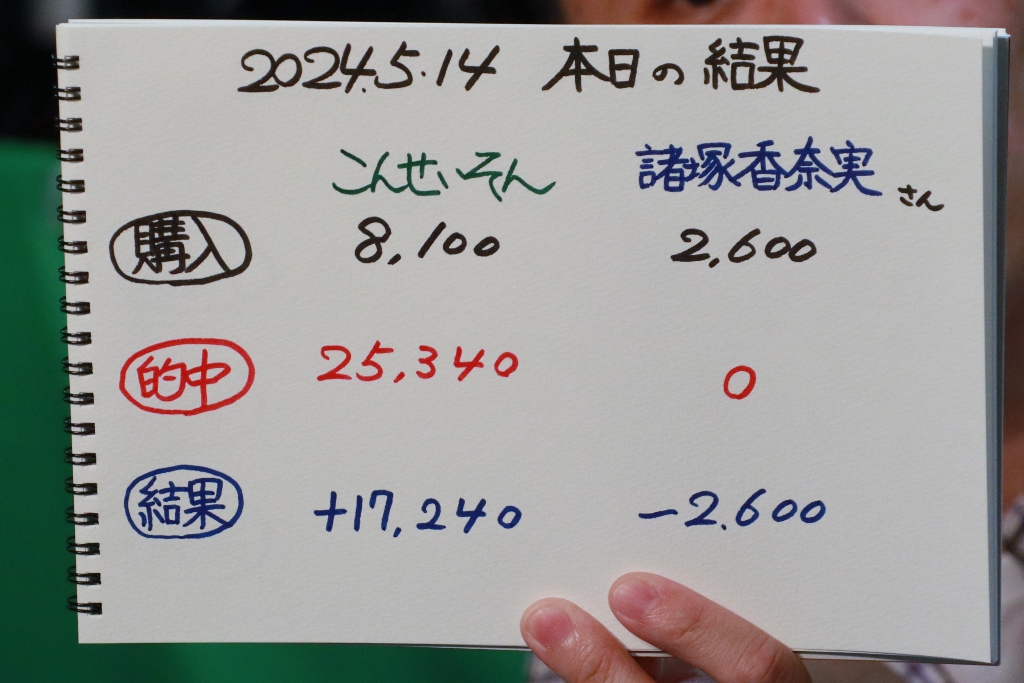 2024.5.14 本日の結果
こんせいそん 諸塚香奈実さん
購入 8,100 2,600
的中 25,340 0
結果 +17,240 -2.600